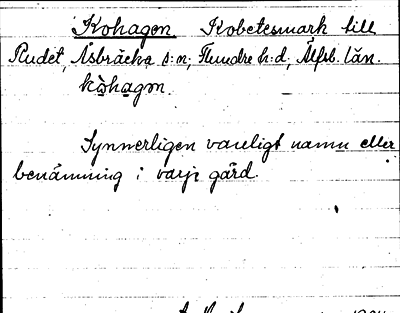 Kohagen Kobetesmark till
Rudet, Åsbräcka s:n, Flundre h:d, Älfsb. län.
kòhagən.
Synnerligen vanligt namn eller
benämning i varje gård.